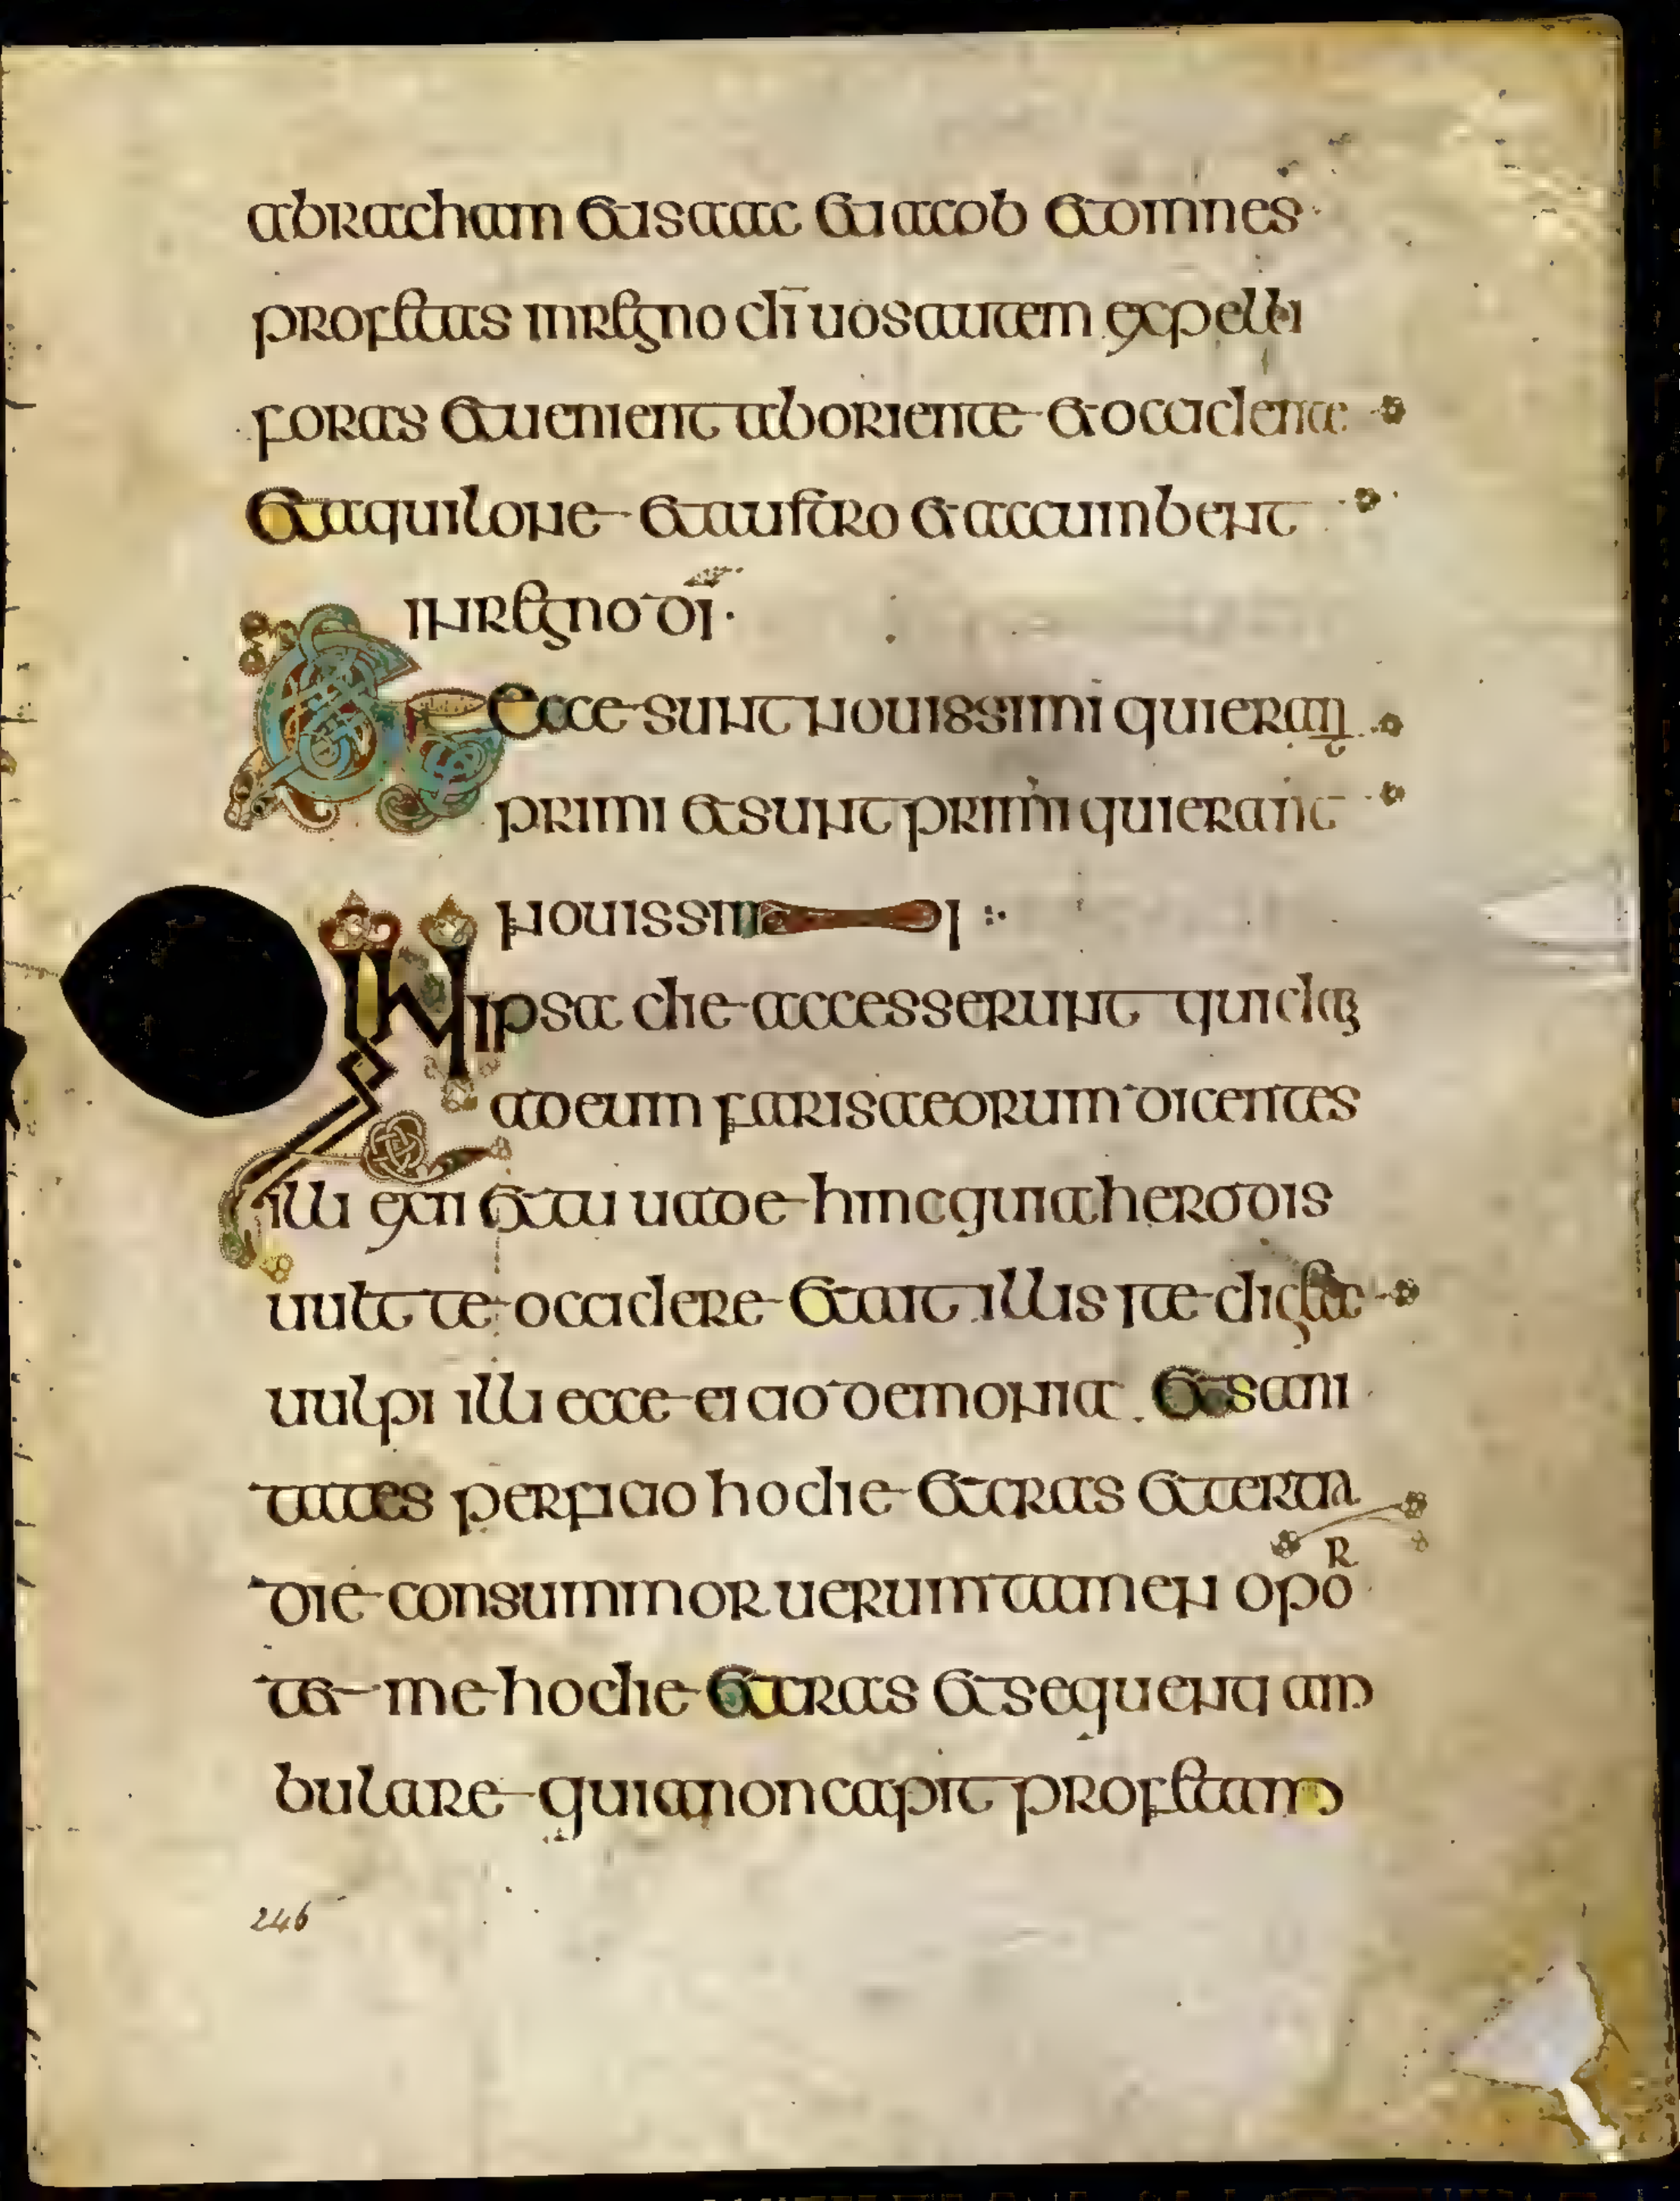 abracham et isaac et iacob et omnes
profetas in regno dī uos autem expelli
foras et uenient ab oriente et occidente
et aquilone et austro et accumbent
in regno dī·
Et ecce sunt nouissimi qui erant
primi et sunt primi qui erant
nouissimi :·
IN ipsa die accesserunt quidam
ad eum farisaeorum dicentes
illi exi et tu uade hinc quia herodis
uult te occidere et ait illis ite dicite
uulpi illi ecce eicio demonia et sani
tates perficio hodie et cras et tertia
die consummor uerum tamen opor
tet me hodie et cras et sequenti am
bulare quia non capit profetam
246